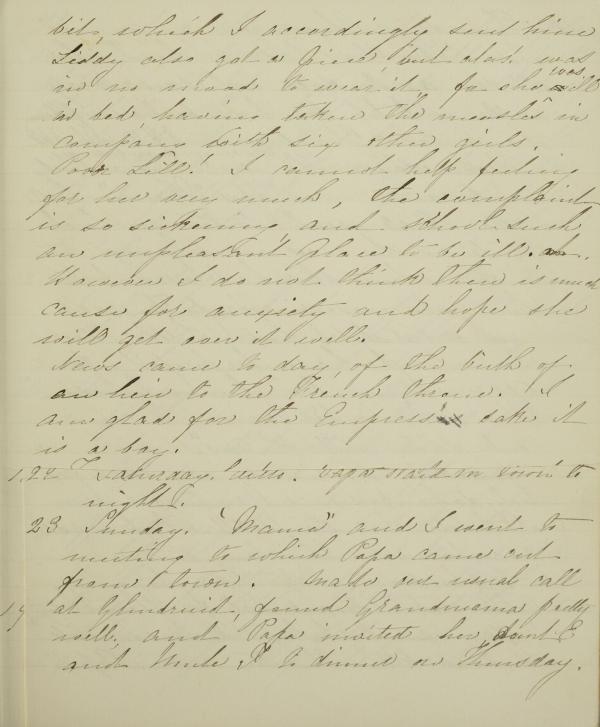 bit, which I accordingly sent him
Liddy also got a piece, but alas! was
in no mood to wear it, for she was ill
in bed, having taken the measles in
company with six other girls.
Poor Lill! I cannot help feeling
for her very much, the complaint
is so sickening, and school such
an unpleasant place to be ill at.
However I do not think there is much
cause for anxiety and hope she
will get over it well.
News came to day, of the birth of
an heir to the French throne. I
am glad for the Empress' sake it
is a boy.
22 Saturday. ditto. Papa staid in town to
night.
23 Sunday. "Mama" and I went to
meeting to which Papa came out
from town. Made our usual call
at Glendruid, found Grandmama pretty
well, and Papa invited her, Aunt E
and Uncle T to dinner on Thursday.